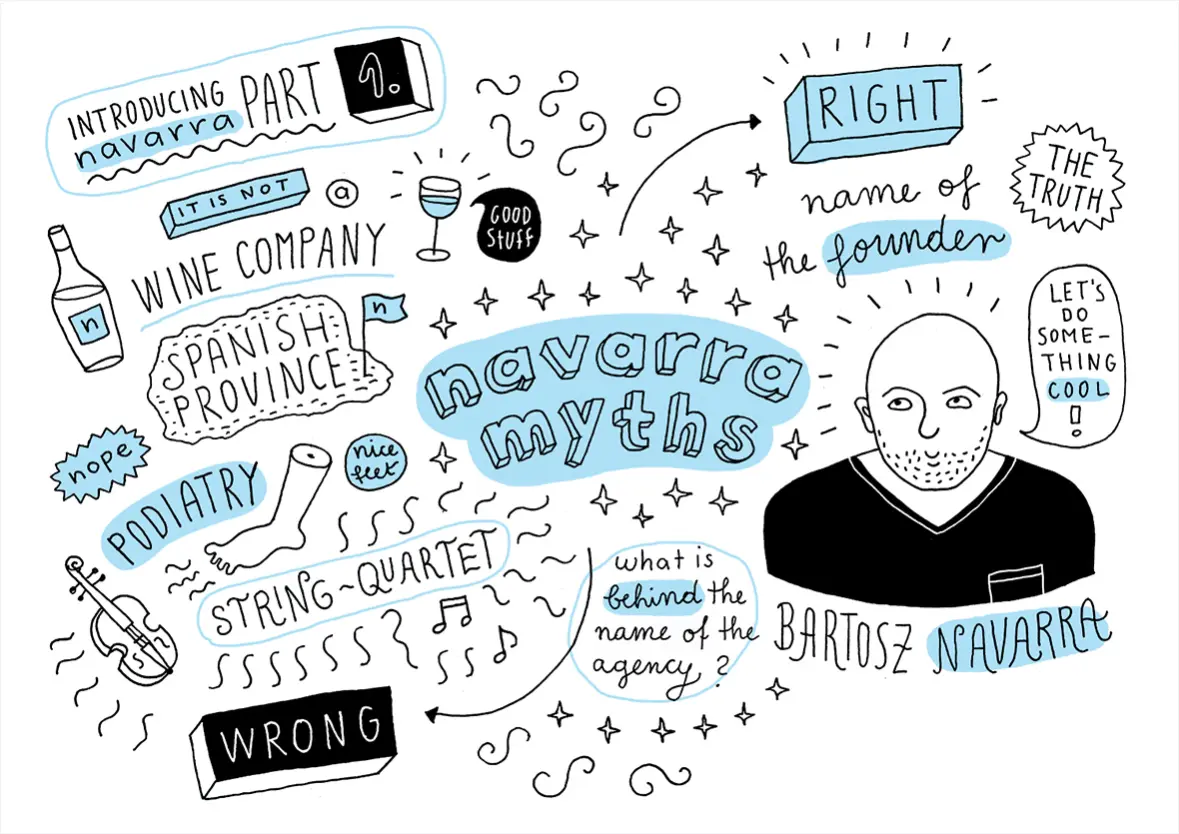 INTRODUCING
navarra
PART
1.
IT IS NOT
a
WINE COMPANY
n
GOOD
STUFF
SPANISH
PROVINCE
n
nope
PODIATRY
nice
feet
STRING~QUARTET
WRONG
navarra
myths
what is
behind the
name of the
agency?
RIGHT
name of
the founder
THE
TRUTH
LET'S
DO
SOME-
THING
COOL
!
BARTOSZ NAVARRA